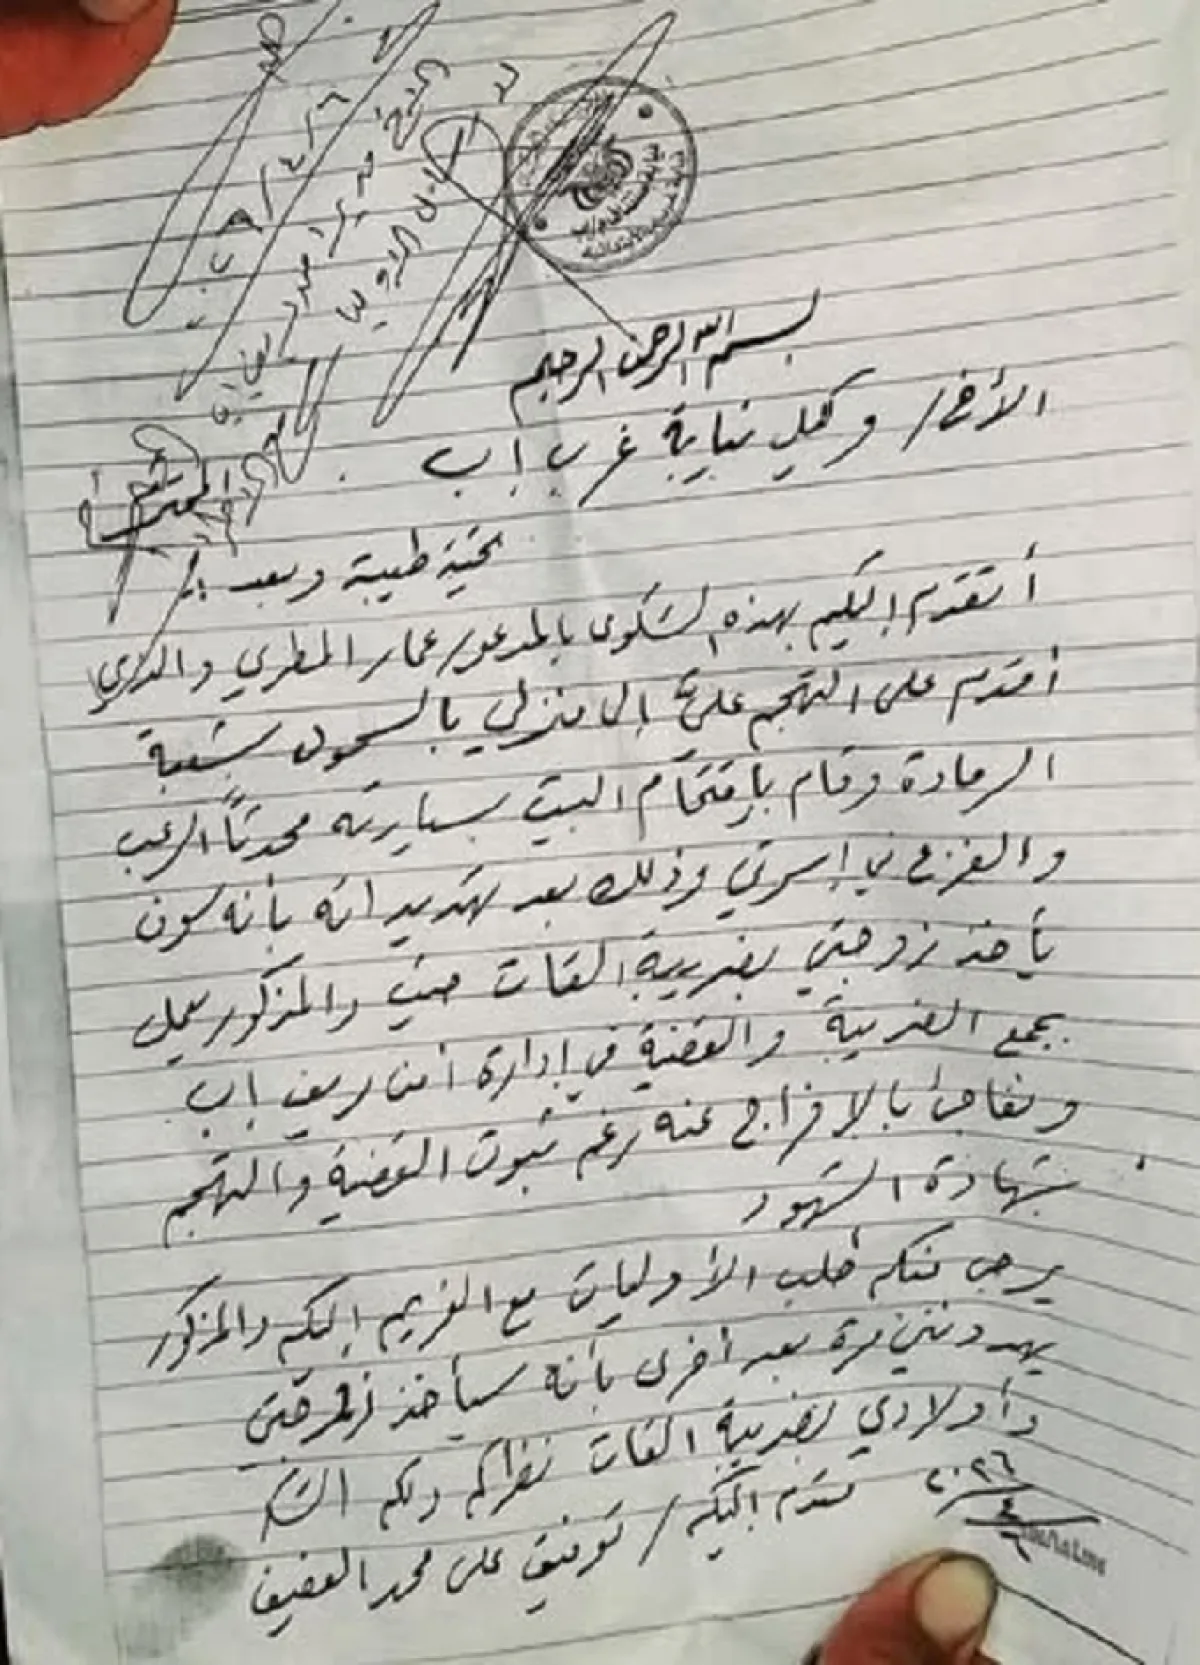 الأخ/ مدير أمن
بسم الله الرحمن الرحيم
الأخ/ وكيل نيابة غرب إب
المحترم
تحية طيبة وبعد :
أتقدم إليكم بهذه الشكوى بالمدعو/ عمار المطري والذي
أقدم على التهجم عليّ إلى منزلي بالسحول شعبة
الرمادة وقام بإقتحام البيت بسيارته محدثاً الرعب
والفزع في إسرتي وذلك بعد تهديداته بأنه سوف
يأخذ زوجتي بضريبة القات حقي والمذكور يعمل
بجمع الضريبة والقضية في إدارة أمن ريف إب
ونفاجئ بالإفراج عنه رغم ثبوت القضية والتهجم
بشهادة الشهود
يرجى منكم طلب الأوليات مع الغريم إليكم والمذكور
يهددنني مرة بعد أخرى بأنه سيأخذ زوجتي
وأولادي بضريبة القات نظركم ولكم الشكر
مقدم إليكم/ توفيق علي محمد العفيف
٢٠٢٦/٤/٦